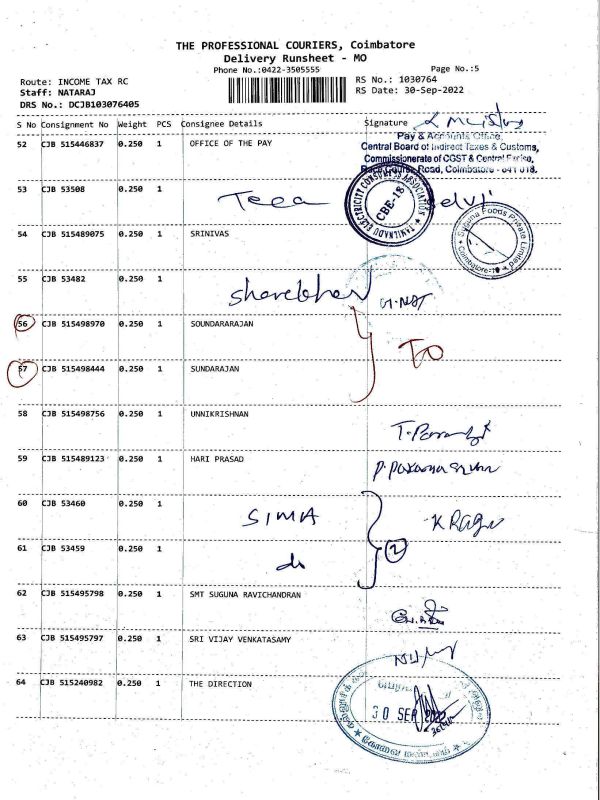 THE PROFESSIONAL COURIERS, Coimbatore
Delivery Runsheet - MO
Phone No.:0422-3505555
Page No.:5
Route: INCOME TAX RC
RS No.: 1030764
Staff: NATARAJ
RS Date: 30-Sep-2022
DRS No.: DCJB103076405
S No Consignment No Weight PCS Consignee Details Signature
52 CJB 515446837 0.250 1 OFFICE OF THE PAY
Pay & Accounts Office,
Central Board of Indirect Taxes & Customs,
Commissionerate of CGST & Central Excise,
Race Course Road, Coimbatore - 641 018.
53 CJB 53508 0.250 1
TAMILNADU ELECTRICITY CONSUMERS ASSOCIATION
CBE-18
54 CJB 515489075 0.250 1 SRINIVAS
Foods Private Limited
Coimbatore-18
55 CJB 53482 0.250 1 Sharebhar
56 CJB 515498970 0.250 1 SOUNDARARAJAN
TO
57 CJB 515498444 0.250 1 SUNDARAJAN
58 CJB 515498756 0.250 1 UNNIKRISHNAN
59 CJB 515489123 0.250 1 HARI PRASAD
60 CJB 53460 0.250 1 SIMA K Ragu
61 CJB 53459 0.250 1 do 2
62 CJB 515495798 0.250 1 SMT SUGUNA RAVICHANDRAN
63 CJB 515495797 0.250 1 SRI VIJAY VENKATASAMY
64 CJB 515240982 0.250 1 THE DIRECTION
30 SEP 2022